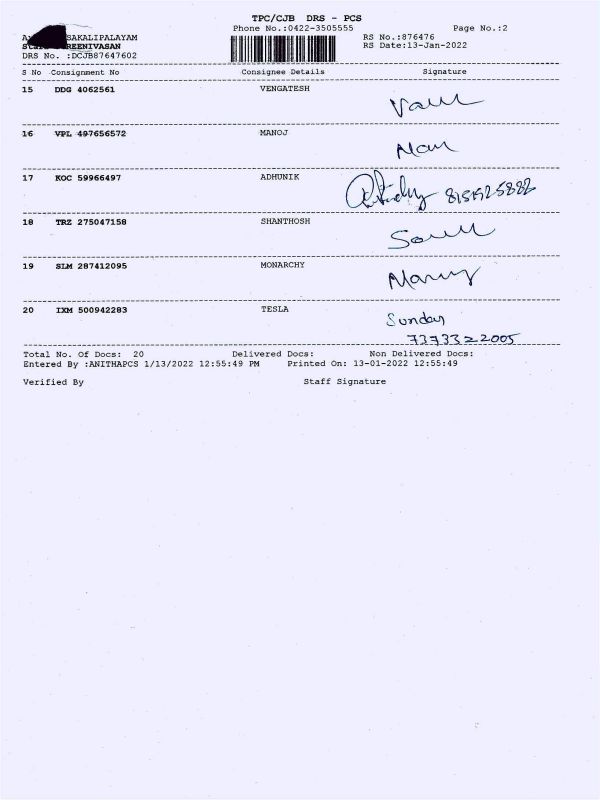 TPC/CJB DRS - PCS
Phone No.:0422-3505555 Page No.:2
SAKALIPALAYAM RS No.:876476
REENIVASAN RS Date:13-Jan-2022
DRS No. :DCJB87647602
S No Consignment No Consignee Details Signature
15 DDG 4062561 VENGATESH
16 VPL 497656572 MANOJ
17 KOC 59966497 ADHUNIK
18 TRZ 275047158 SHANTHOSH
19 SLM 287412095 MONARCHY
20 IXM 500942283 TESLA Sunday
7373322005
Total No. Of Docs: 20 Delivered Docs: Non Delivered Docs:
Entered By :ANITHAPCS 1/13/2022 12:55:49 PM Printed On: 13-01-2022 12:55:49
Verified By Staff Signature